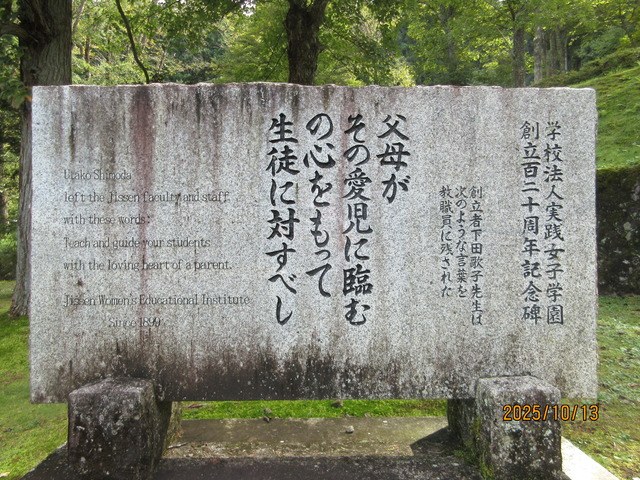 学校法人実践女子学園
創立百二十周年記念碑
創立者下田歌子先生は
次のような言葉を
教職員に残された
父母が
その愛児に臨む
の心をもって
生徒に対すべし
Utako Shimoda
left the Jissen faculty and staff
with these words:
Teach and guide your students
with the loving heart of a parent.
Jissen Women's Educational Institute
Since 1899
2025/10/13